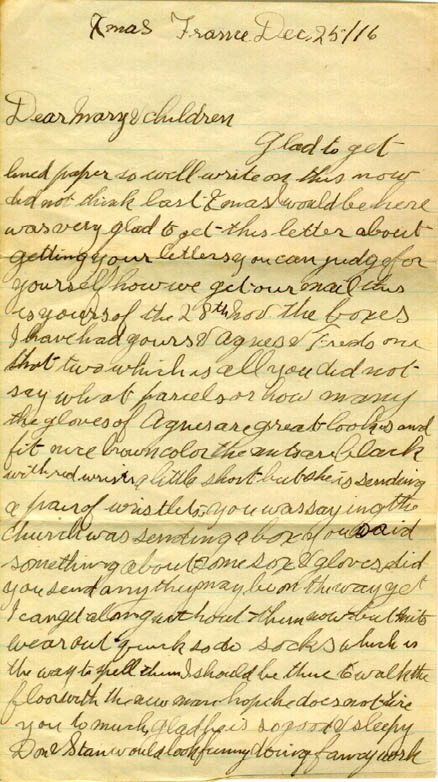 Xmas France Dec. 25/16
Dear Mary & children
Glad to get
lined paper so will write on this now
did not think last Xmas would be here
was very glad to get this letter about
getting your letters you can judge for
yourself how we get our mail this
is yours of the 28th nov the boxes
I have had yours & Agnes & Freds one
that two which is all you did not
say what parcels or how many
the gloves of Agnes are great looks and
fit nice brown color the are black
with red wrists a little short but she is sending
a pair of wristlets, you was saying the
church was sending a box you said
something about some sox & gloves did
you send any they may be on the way yet
I can get along without them now but mits
wear out quick so do socks which is
the way to spell them I should be there to walk the
floor with the new man hope he does not tire
you to much, glad he is so good & sleepy
Don & Stan would look funny doing fancy work